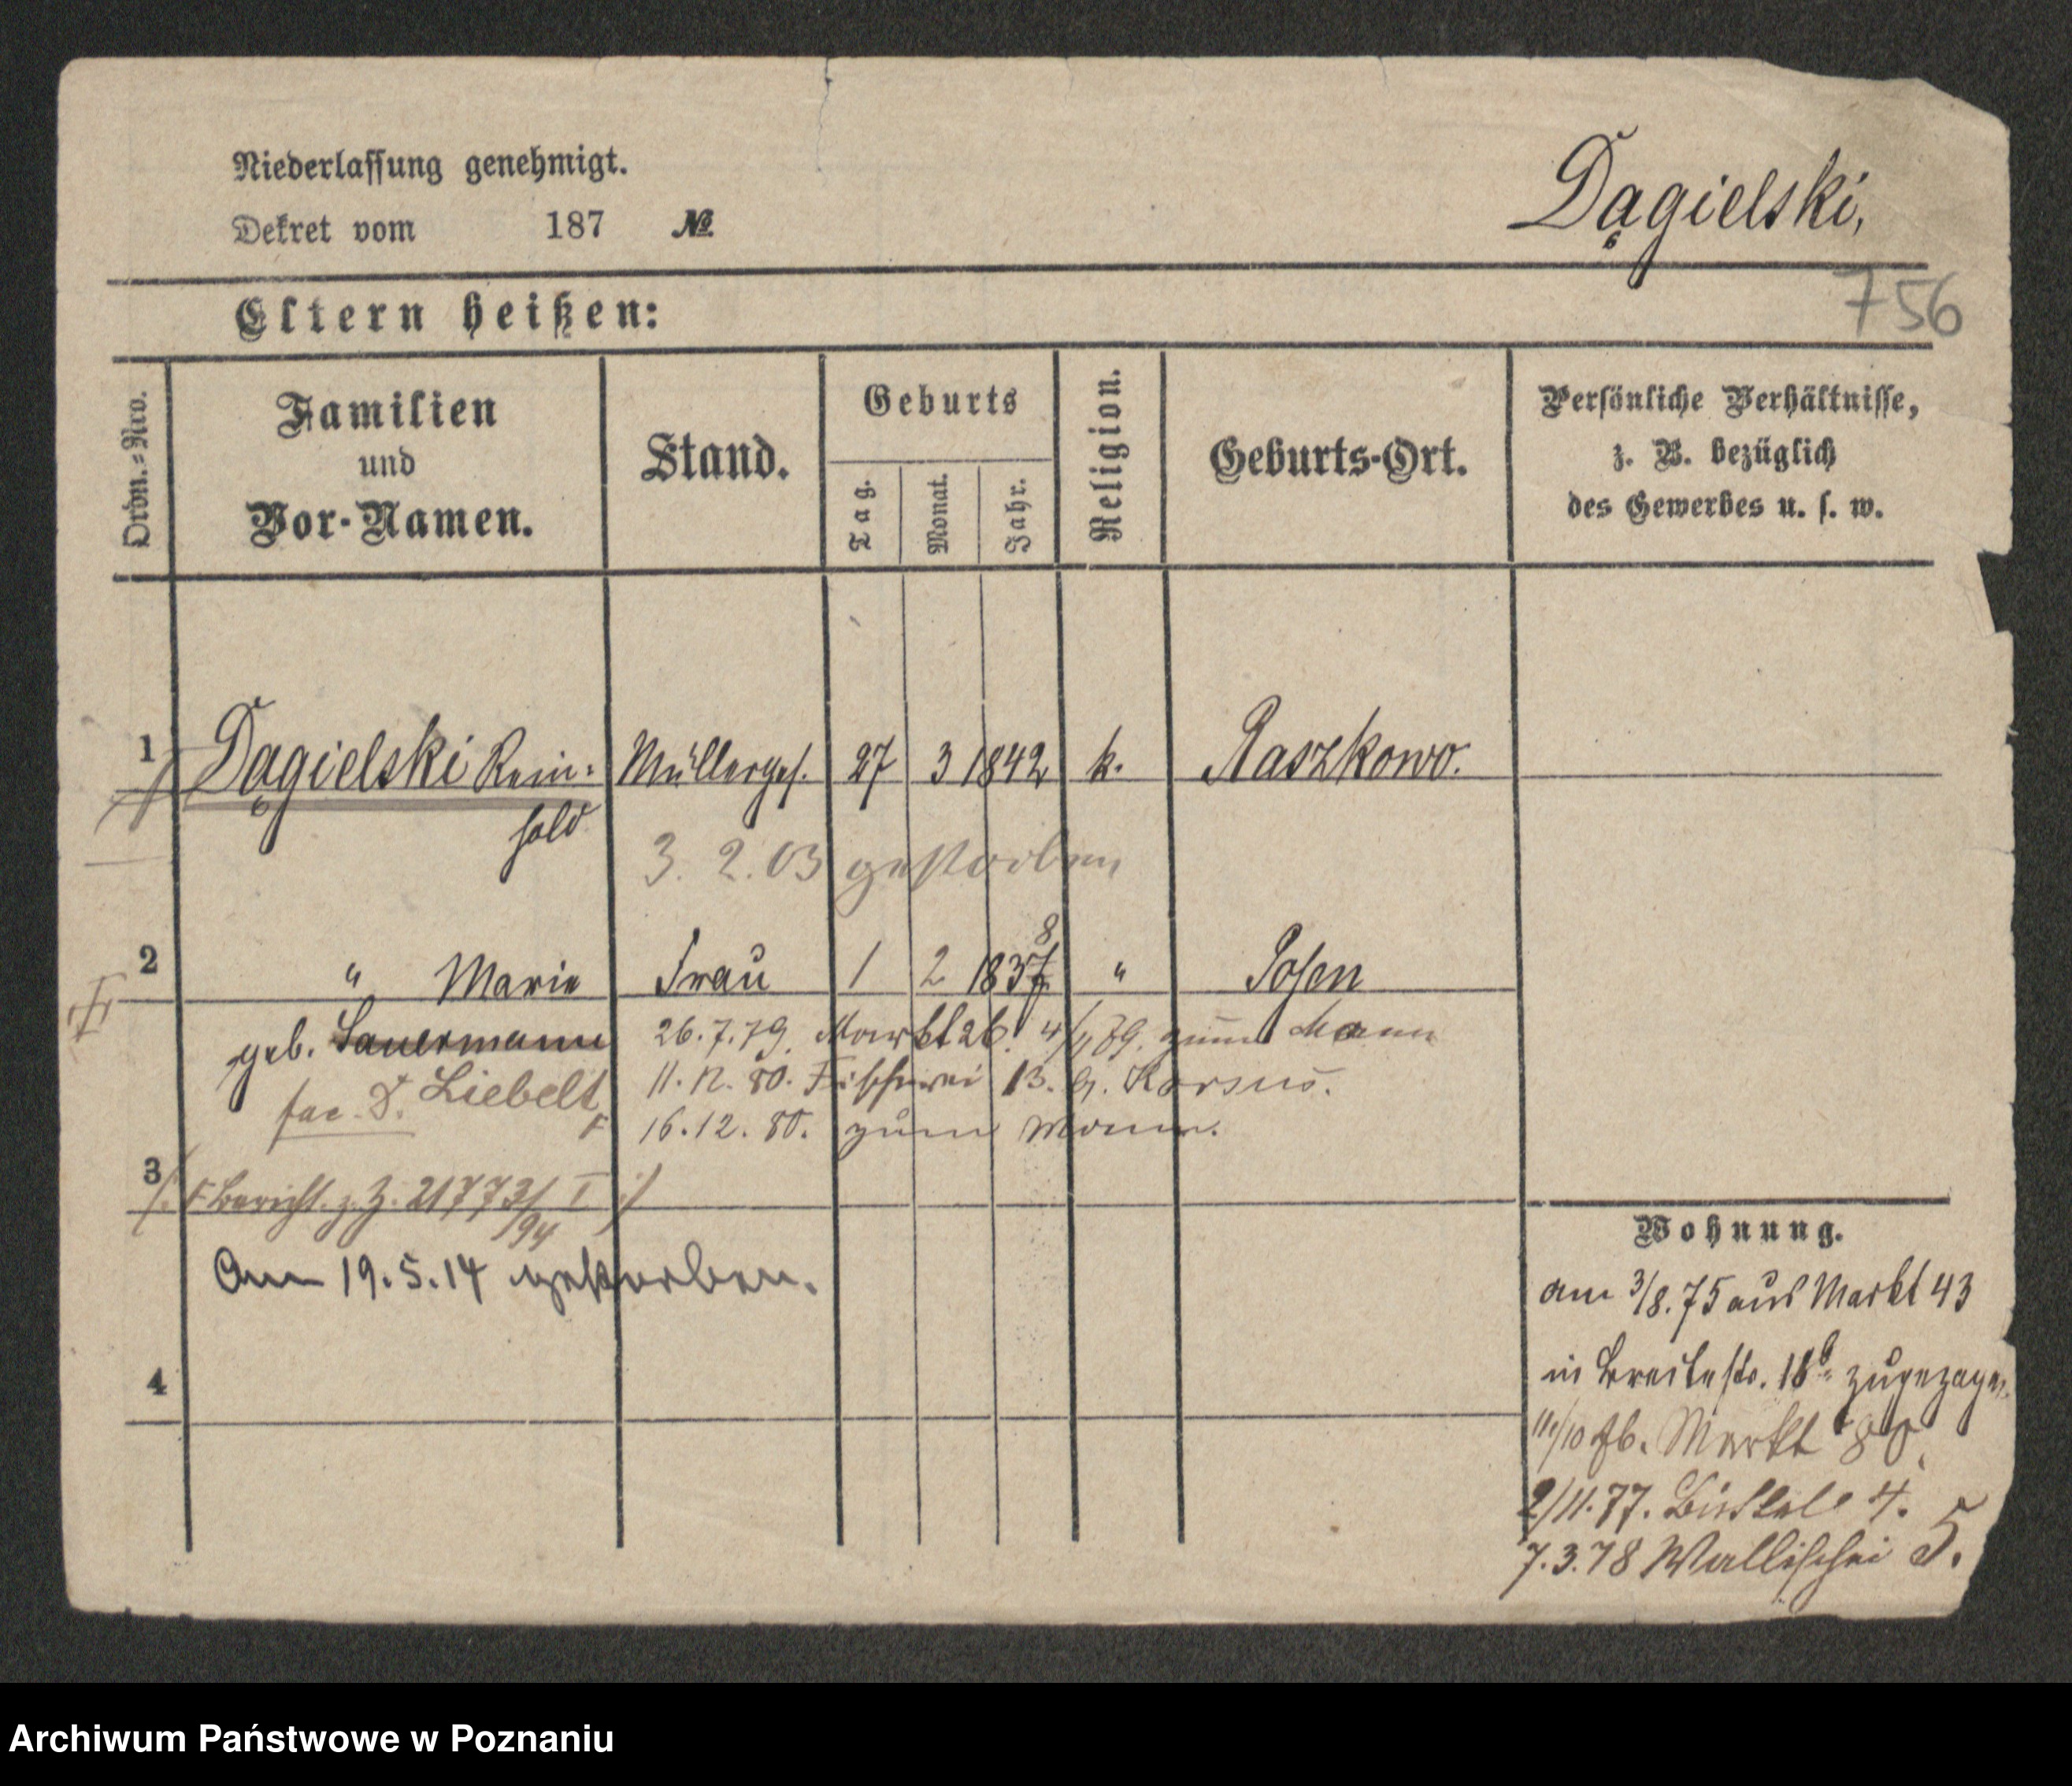 Niederlassung genehmigt.
Dekret vom 187 №
Dągielski,
756
Eltern heißen:
Ordn.-Nro.
Familien
und
Vor-Namen.
Stand.
Geburts
Tag.
Monat.
Jahr.
Religion.
Geburts-Ort.
Persönliche Verhältnisse,
z. B. bezüglich
des Gewerbes u. s. w.
1 Dągielski Rein- Müllerges. 27 3 1842 k. Raszkowo.
hold
3. 2. 03 gestorben
8
2 " Marie Frau 1 2 1837 " Posen
geb. Sauermann 26.7.79. Markt 26. zum Mann
Liebelt 11.12.80. Fischerei 13.
16.12.80. zum Mann.
3 Bericht. z. Z. 21773/94 I
Am 19.5.14 gestorben.
4
Wohnung.
am 3/8.75 aus Markt 43
in Breitestr. 18b. zugezogen
11/10 Markt 80.
2/11.77. 4.
7.3.78 Wallischei 5.
Archiwum Państwowe w Poznaniu